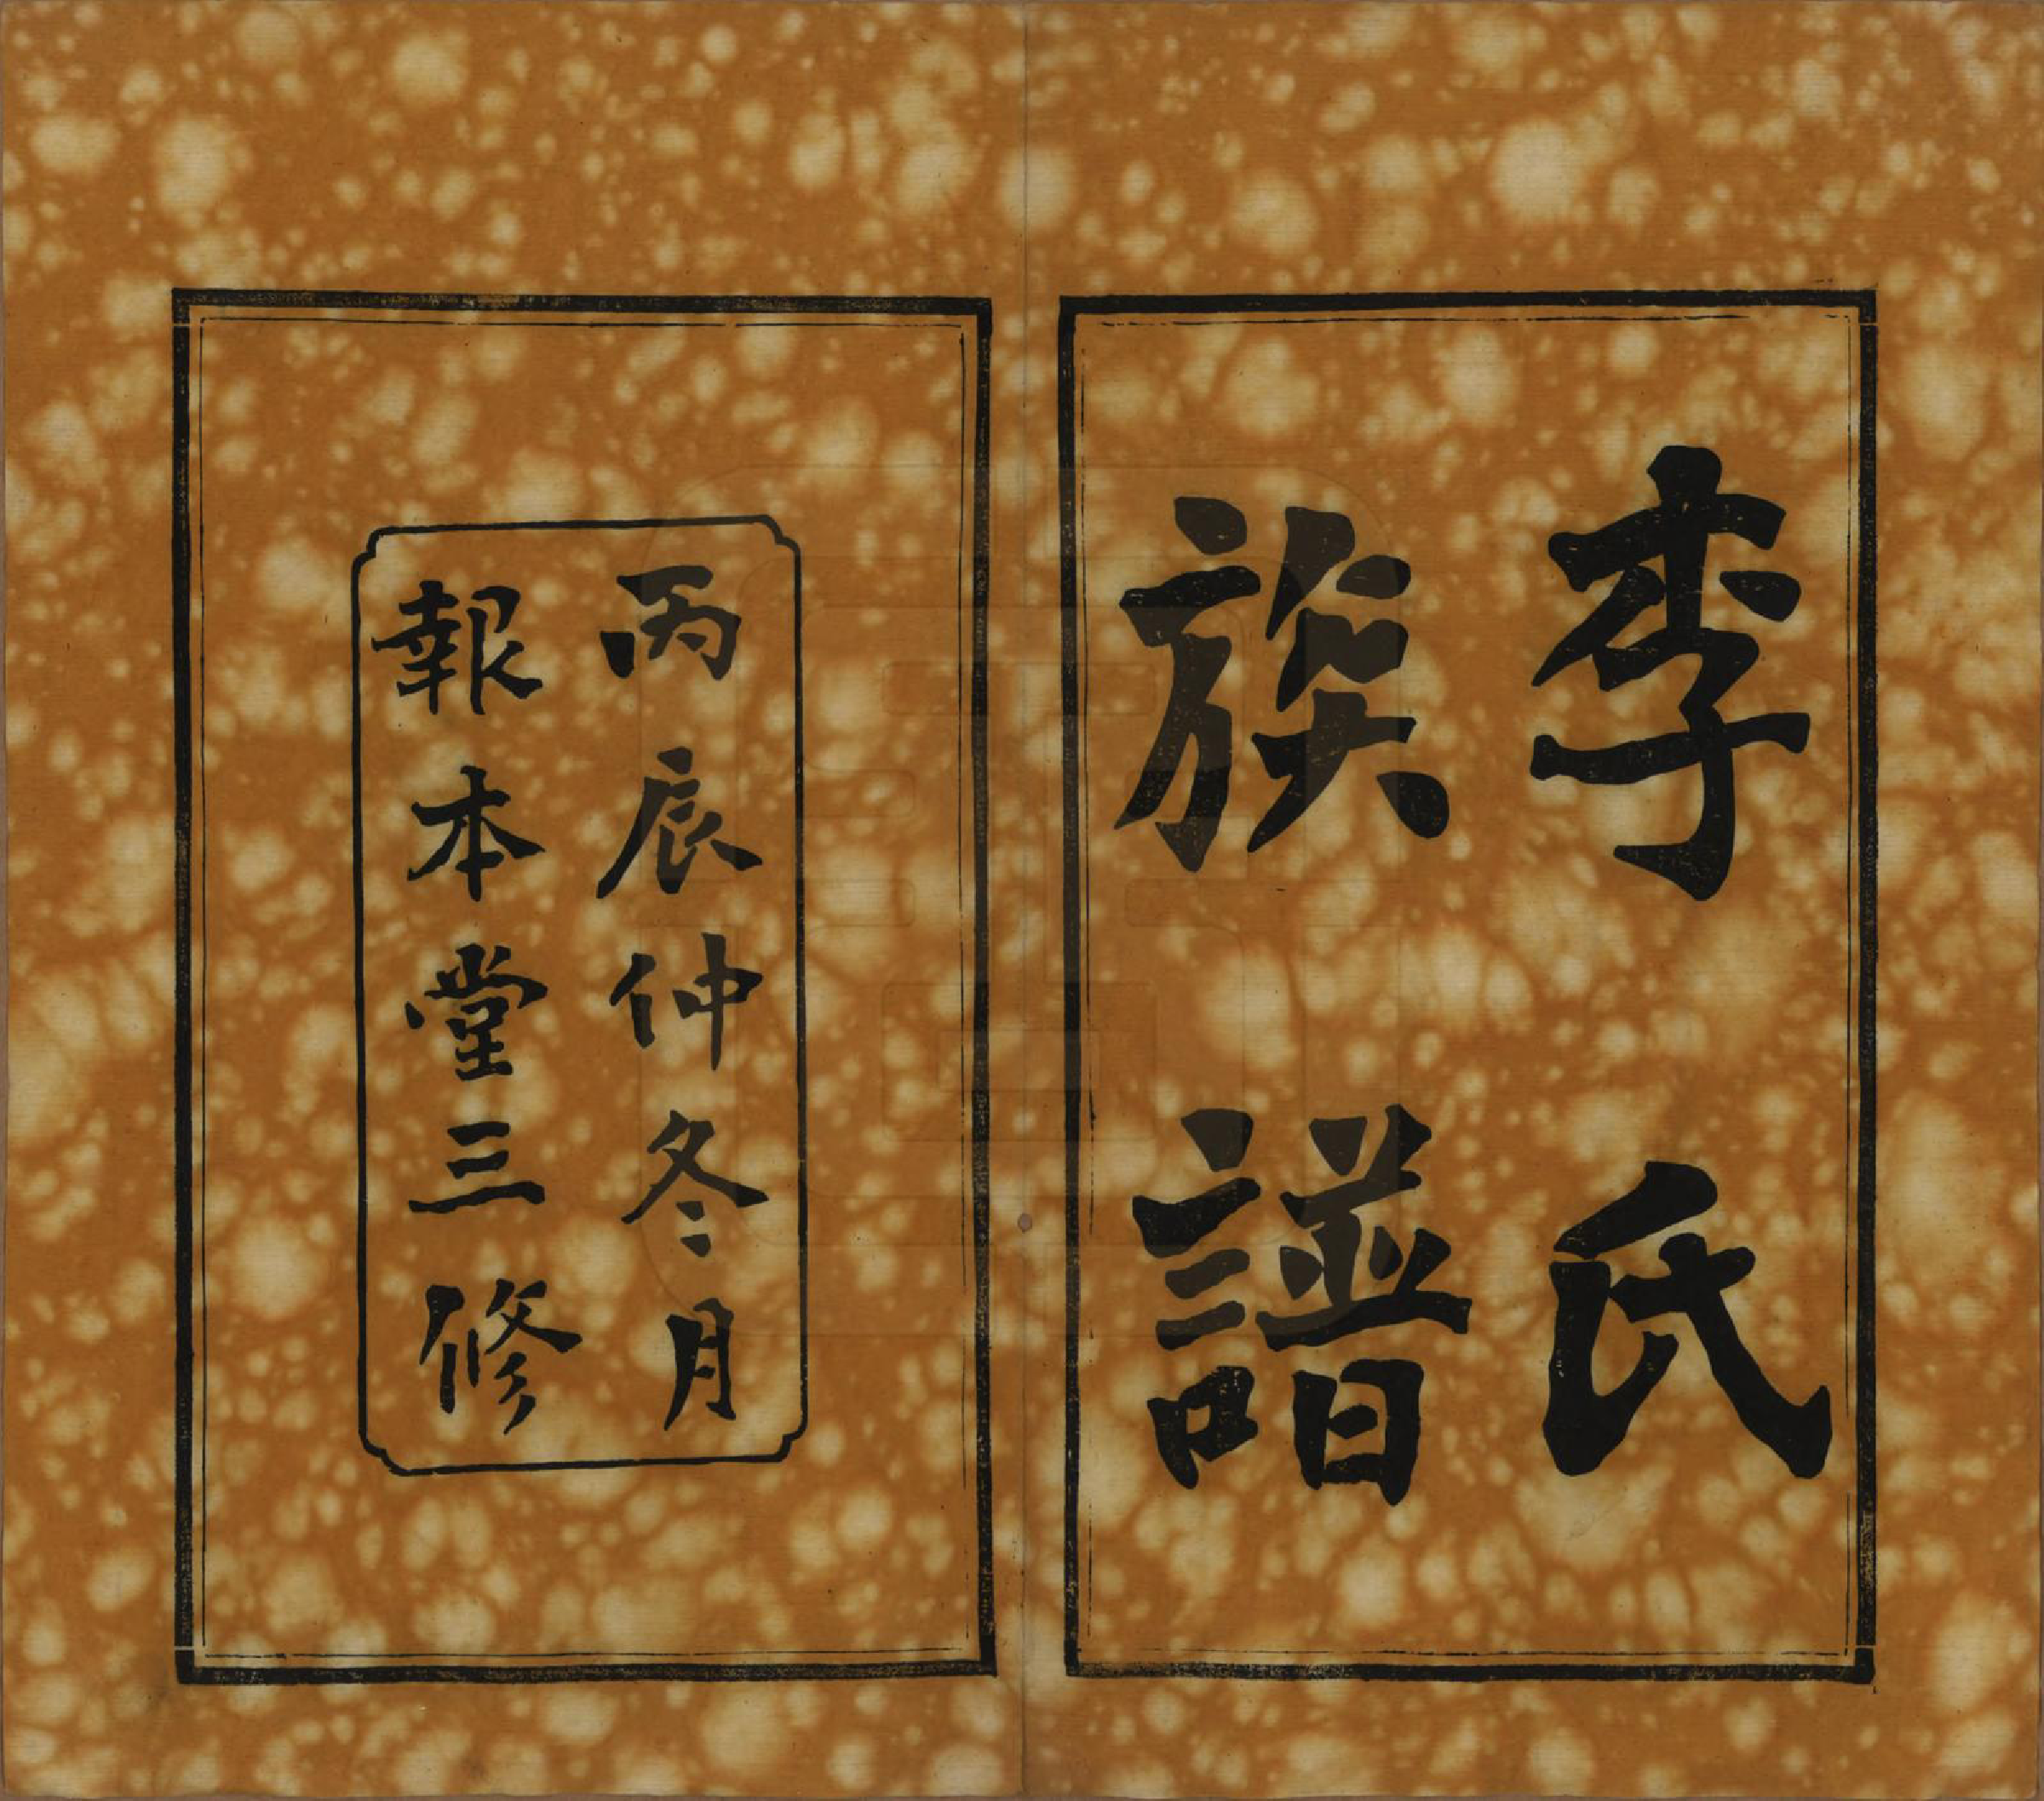 李氏
族譜
丙辰仲冬月
報本堂三修